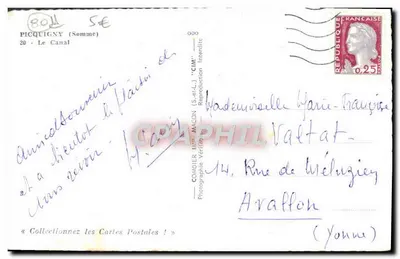 801
5€
PICQUIGNY (Somme)
20 - Le Canal
Amical Souvenir
et a bientot le plaisir de
vous revoir.
COMBIER IMP. MACON (S.-et-L.) "CIM"
Photographie Véritable - Reproduction Interdite
REPUBLIQUE FRANÇAISE
0,25
Mademoiselle Marie-Françoise
Valtat
14, Rue de
Avallon
(Yonne)
« Collectionnez les Cartes Postales ! »
DELCAMPHIL.COM